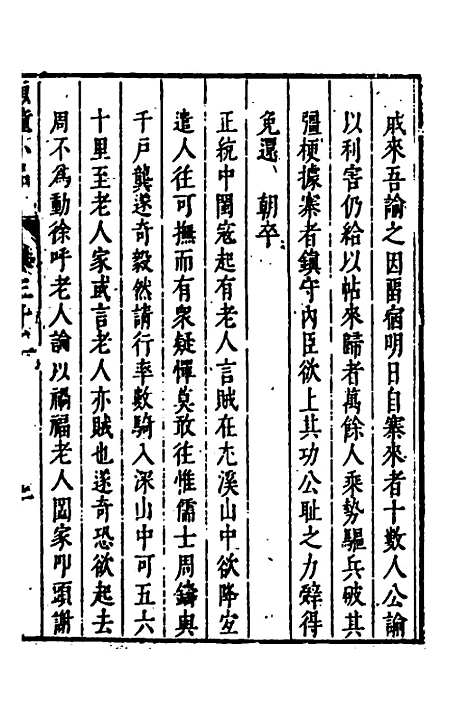 戚來吾諭之因畱宿明日自寨來者十數人公諭
以利害仍給以帖來歸者萬餘人乘勢驅兵破其
彊梗據寨者鎮守內臣欲上其功公耻之力辤得
免還朝卒
正統中閩寇起有老人言賊在尤溪山中欲降宜
遣人往可撫而有衆疑憚莫敢往惟儒士周鑄與
千戸龔遂奇毅然請行率數騎入深山中可五六
十里至老人家或言老人亦賊也遂奇恐欲起去
周不爲動徐呼老人諭以禍福老人闔家叩頭謝